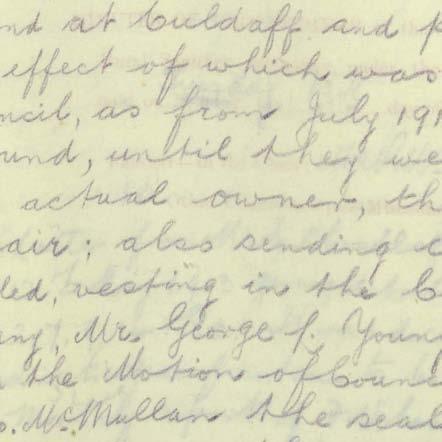 nd at Culdaff and p
effect of which was
ncil, as from July 191
und, until they we
actual owner, th
air; also sending c
led, vesting in the C
any, Mr. George f. Young
n the Motion of Counc
o. McMullan the seal